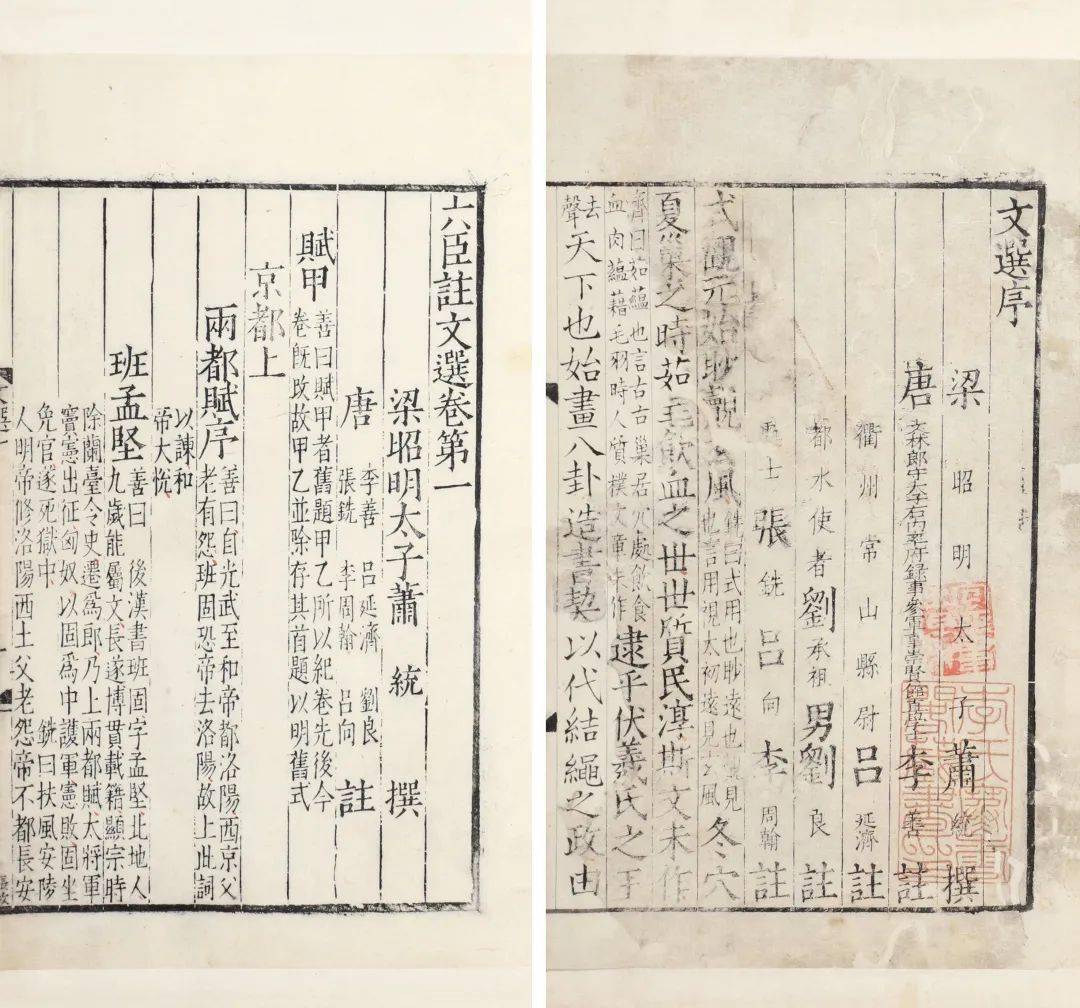 文選序
梁昭明太子蕭統撰
唐文林郎守太子右內率府録事參軍事崇賢館直學士李善註
衢州常山縣尉呂延濟註
都水使者劉承祖男劉良註
處士張銑呂向李周翰註
式觀元始眇覿玄風銑曰式用也眇遠也覿見也言用視太初遠見玄風冬穴
夏巢之時茹毛飲血之世世質民淳斯文未作
濟曰茹蘊也言古古巢居穴處飲食血肉蘊藉毛羽時人質樸文章未作逮乎伏羲氏之王
去聲天下也始畫八卦造書契以代結繩之政由
六臣註文選卷第一
梁昭明太子蕭統撰
唐李善呂延濟劉良張銑李周翰呂向註
賦甲善曰賦甲者舊題甲乙所以紀卷先後今卷旣改故甲乙並除存其首題以明舊式
京都上
兩都賦序善曰自光武至和帝都洛陽西京父老有怨班固恐帝去洛陽故上此詞
以諫和帝大悅
班孟堅善曰後漢書班固字孟堅北地人九歲能屬文長遂博貫載籍顯宗時
除蘭臺令史遷爲郎乃上兩都賦大將軍竇憲出征匈奴以固爲中護軍憲敗固坐
免官遂死獄中銑曰扶風安陵人明帝修洛陽西土父老怨帝不都長安